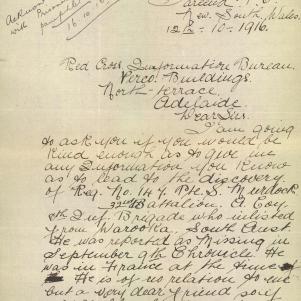 Ackno
with Prisoners
pamphlet
16.10.16
New South Wales
12th - 10 - 1916.
Red Cross Information Bureau.
Verco Buildings.
North Terrace.
Adelaide.
Dear Sirs.
I am going
to ask you if you would be
kind enough as to give me
any Information you know
as to lead to the discovery
of Reg. No. 147 Pte. S. Murdock
32nd Battalion, A Coy
8th Inf. Brigade who inlisted
from Warooka, South Aust.
He was reported as Missing in
September 9th Chronicle. He
was in France at the time
He is of no relation to me
but a very dear friend so if